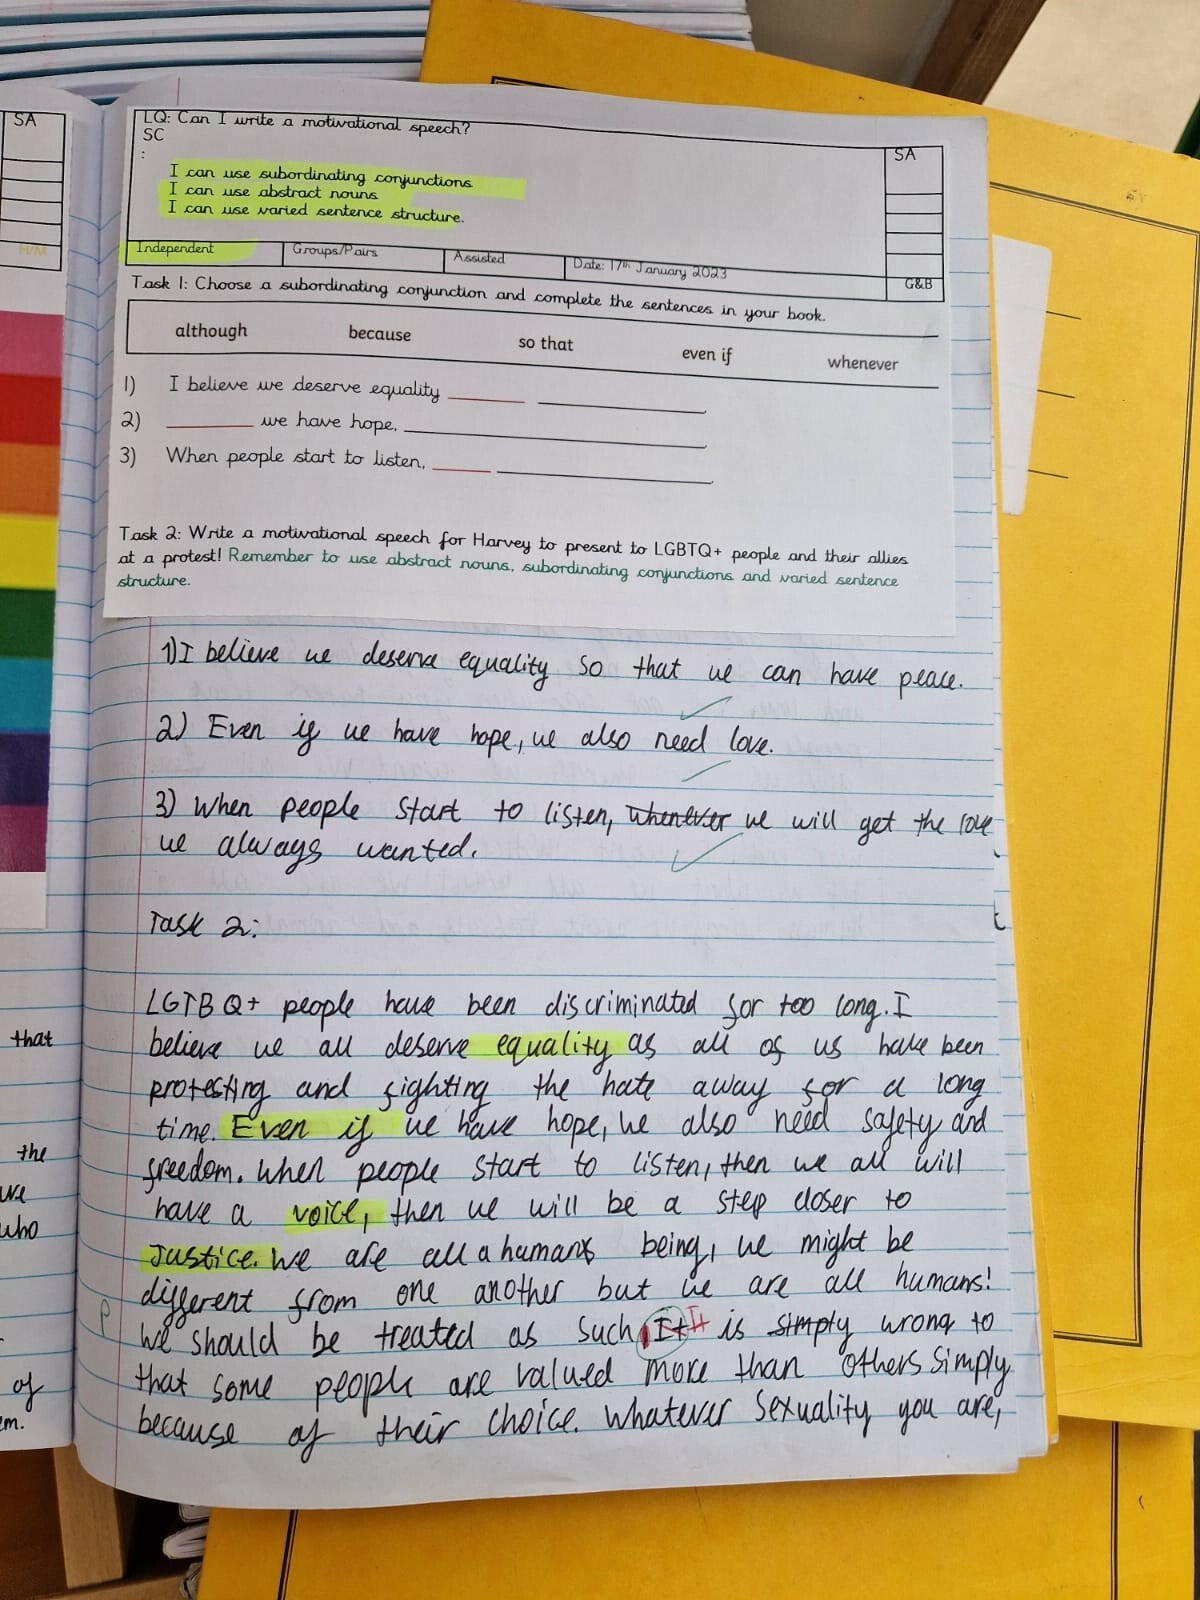 SA
H/M
that
the
we
who
of
em.
LQ: Can I write a motivational speech?
SC
:
I can use subordinating conjunctions
I can use abstract nouns
I can use varied sentence structure.
SA
Independent Groups/Pairs Assisted Date: 17th January 2023
G&B
Task 1: Choose a subordinating conjunction and complete the sentences in your book.
although because so that even if whenever
1) I believe we deserve equality ______ ______.
2) ______ we have hope, ______.
3) When people start to listen, ______ ______.
Task 2: Write a motivational speech for Harvey to present to LGBTQ+ people and their allies
at a protest! Remember to use abstract nouns, subordinating conjunctions and varied sentence
structure.
1) I believe we deserve equality so that we can have peace.
2) Even if we have hope, we also need love.
3) When people start to listen, whenever we will get the love
we always wanted.
Task 2:
LGTBQ+ people have been discriminated for too long. I
believe we all deserve equality as all of us have been
protesting and fighting the hate away for a long
time. Even if we have hope, we also need safety and
freedom. When people start to listen, then we all will
have a voice, then we will be a step closer to
Justice. We are all a humans being, we might be
different from one another but we are all humans!
P
We should be treated as such, It It is simply wrong to
that some people are valued more than others simply
because of their choice. Whatever sexuality you are,